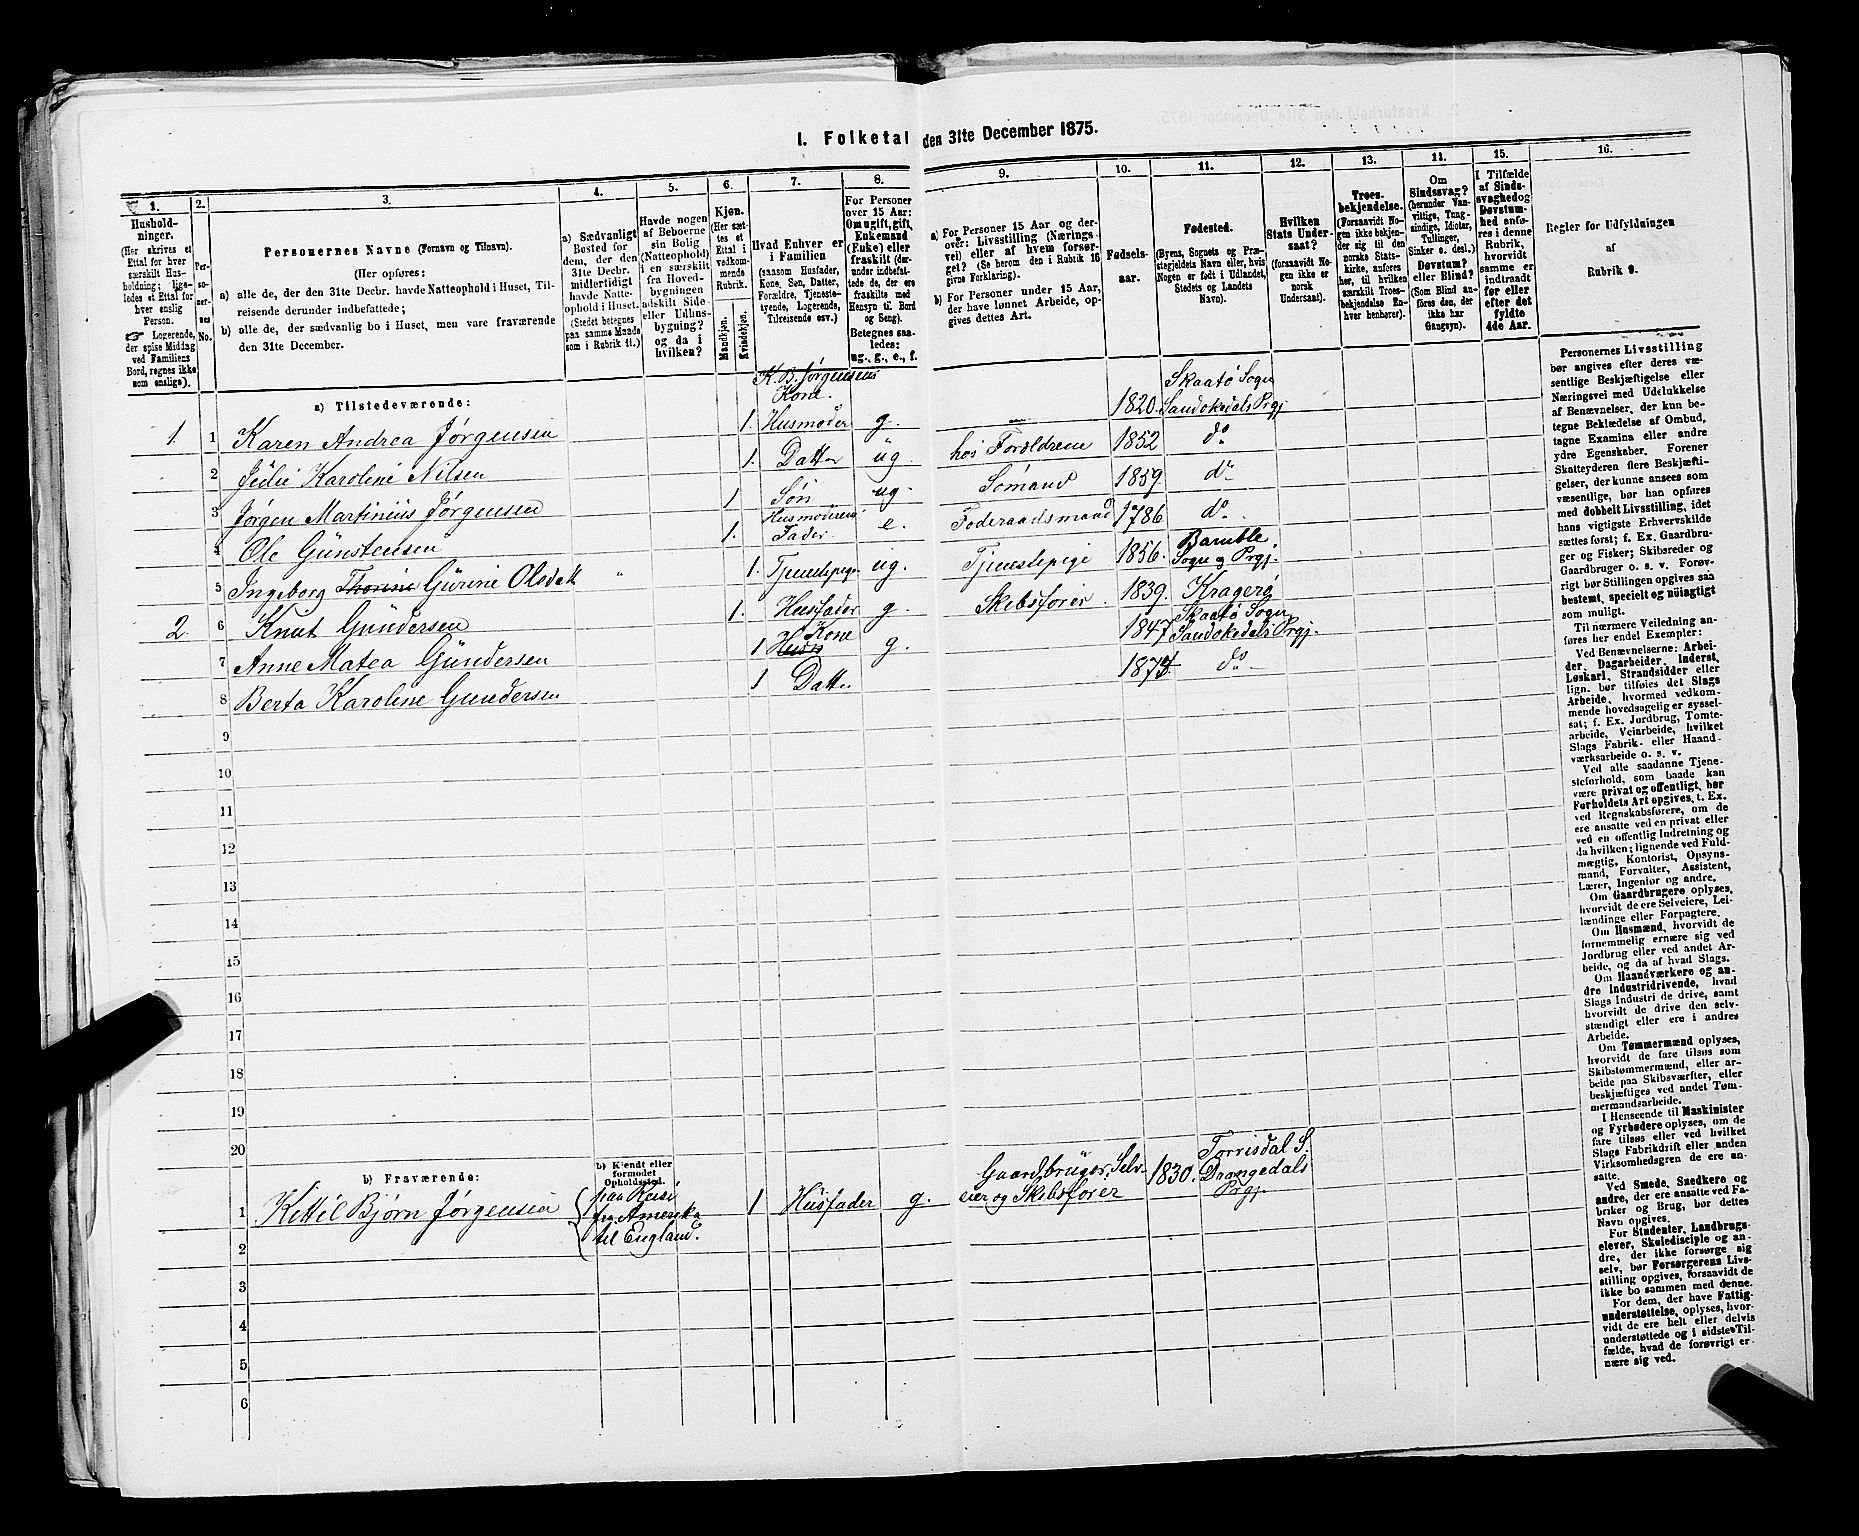 I. Folketal den 31te December 1875.
1. 2. 3. 4. 5. 6. 7. 8. 9. 10. 11. 12. 13. 14. 15. 16.
Husholdninger.
(Her skrives et
Ettal for hver
særskilt Husholdning;
ligeledes et Ettal for
hver enslig
Person.
☞ Logerende,
der spise Middag
ved Familiens
Bord, regnes ikke
som enslige).
Personernes No.
Personernes Navne (Fornavn og Tilnavn).
(Her opføres:
a) alle de, der den 31te Decbr. havde Natteophold i Huset, Tilreisende
derunder indbefattede;
b) alle de, der sædvanlig bo i Huset, men vare fraværende
den 31te December.
a) Sædvanligt
Bosted for
dem, der den
31te Decbr.
midlertidigt
havde Natteophold
i Huset.
(Stedet betegnes
paa samme Maade
som i Rubrik 11.)
Havde nogen
af Beboerne
sin Bolig
(Natteophold)
i en særskilt
fra Hovedbygningen
adskilt Side
eller Udhusbygning?
og da i
hvilken?
Kjøn.
(Her sættes
et
Ettal i
vedkommende
Rubrik.
Mandkjøn. Kvindekjøn.
Hvad Enhver er
i Familien
(saasom Husfader,
Kone, Søn, Datter,
Forældre, Tjenestetyende,
Logerende,
Tilreisende osv.)
For Personer
over 15 Aar:
Om ugift, gift,
Enkemand
(Enke) eller
fraskilt (derunder
indbefattede
de, der ere
fraskilte med
Hensyn til Bord
og Seng).
Betegnes saaledes:
ug., g., e., f.
a) For Personer 15 Aar og derover:
Livsstilling (Næringsvei)
eller af hvem forsørget?
(Se herom den i Rubrik 16
givne Forklaring).
b) For Personer under 15 Aar,
der have lønnet Arbeide, opgives
dettes Art.
Fødselsaar.
Fødested.
(Byens, Sognets og Præstegjeldets
Navn eller, hvis
Nogen er født i Udlandet,
Stedets og Landets
Navn).
Hvilken
Stats Undersaat?
(forsaavidt Nogen
ikke er
norsk
Undersaat).
Troesbekjendelse.
(Forsaavidt Nogen
ikke bekjender
sig til den
norske Statskirke,
anføres
her, til hvilken
særskilt Troesbekjendelse
Enhver
henhører).
Om
Sindssvag?
(herunder Vanvittige,
Tungsindige,
Idioter,
Tullinger,
Sinker o. desl.)
Døvstum?
eller Blind?
(Som Blind anføres
den, der
ikke har
Gangsyn).
I Tilfælde
af Sindssvaghed
og
Døvstumhed
anføres
i denne
Rubrik,
hvorvidt
samme er
indtraadt
før eller
efter det
fyldte
4de Aar.
Regler for Udfyldningen
af
Rubrik 9.
a) Tilstedeværende:
1. 1 Karen Andrea Jørgensen 1. K. B. Jørgensens Kone. Husmoder g. — 1820. Skaatø Sogn Sandøkedals Prgj.
2 Karoline Nilsen 1. Datter ug. hos Foroldrene 1852 do
3 Jørgen Martinius Jørgensen 1 Søn ug. Sømand 1859 do
4 Ole Gunstensen 1. Husmoderens Fader e. Føderaadsmand 1786 do.
5 Ingeborg Thorine Gurine Olsdatt „ 1. Tjenestepige ug. Tjenestepige 1856. Bamble Sogn og Prgj.
2 6 Knut Gundersen 1. Husfader g. Skibsfører. 1839. Kragerø
7 Anne Matea Gundersen 1 Kone g. 1847 Skaatø Sogn Sandøkedals Prgj.
8 Berta Karoline Gundersen 1 Datter 1874 do
9
10
11
12
13
14
15
16
17
18
19
20
b) Fraværende:
b) Kjendt eller
formodet
Opholdssted.
1 Kittil Bjørn Jørgensen paa Reise fra Amerika til England. 1 Husfader g. Gaardbruger, Selveier og Skibsfører 1830. Torrisdal S. Drangedals Prgj.
2
3
4
5
6
Personernes Livsstilling
bør angives efter deres væsentlige
Beskjæftigelse eller
Næringsvei med Udelukkelse
af Benævnelser, der kun betegne
Beklædelse af Ombud,
tagne Examina eller andre
ydre Egenskaber. Forener
Skatteyderen flere Beskjæftigelser,
der kunne ansees som
væsentlige, bør han opføres
med dobbelt Livsstilling, idet
hans vigtigste Erhvervskilde
sættes først; f. Ex. Gaardbruger
og Fisker; Skibsreder og
Gaardbruger o. s. v. Forøvrigt
bør Stillingen opgives saa
bestemt, specielt og nøiagtigt
som muligt.
Til nærmere Veiledning anføres
her endel Exempler:
Ved Benævnelserne: Arbeider,
Dagarbeider, Inderst,
Løskarl, Strandsidder eller
lign. bør tilføies det Slags
Arbeide, hvormed vedkommende
hovedsagelig er sysselsat;
f. Ex. Jordbrug, Tomtearbeide,
Veiarbeide, hvilket
Slags Fabrik- eller Haandværksarbeide
o. s. v.
Ved alle saadanne Tjenesteforhold,
som baade kan
være privat og offentligt, bør
Forholdets Art opgives, t. Ex.
ved Regnskabsførere, om de
ere ansatte ved en privat eller
ved en offentlig Indretning og
da hvilken; lignende ved Fuldmægtig,
Kontorist, Opsynsmand,
Forvalter, Assistent,
Lærer, Ingeniør og andre.
Om Gaardbrugere oplyses,
hvorvidt de ere Selveiere, Leilændinge
eller Forpagtere.
Om Husmænd, hvorvidt de
fornemmelig ernære sig ved
Jordbrug eller ved andet Arbeide,
og da af hvad Slags.
Om Haandværkere og andre
Industridrivende, hvad
Slags Industri de drive, samt
hvorvidt de drive den selvstændigt
eller ere i andres
Arbeide.
Om Tømmermænd oplyses,
hvorvidt de fare tilsøs som
Skibstømmermænd, eller arbeide
paa Skibsværfter, eller
beskjæftiges ved andet Tømmermandsarbeide.
I Henseende til Maskinister
og Fyrbødere oplyses, om de
fare tilsøs eller ved hvilket
Slags Fabrikdrift eller anden
Virksomhedsgren de ere ansatte.
Ved Smede, Snedkere og
andre, der ere ansatte ved Fabriker
og Brug, bør dettes
Navn opgives.
For Studenter, Landbrugselever,
Skoledisciple og andre,
der ikke forsørge sig
selv, bør Forsørgerens Livsstilling
opgives, forsaavidt de
ikke bo sammen med denne.
For dem, der have Fattigunderstøttelse,
oplyses, hvorvidt
de ere helt eller delvis
understøttede og i sidste Tilfælde,
hvad de forøvrigt ernære
sig ved.